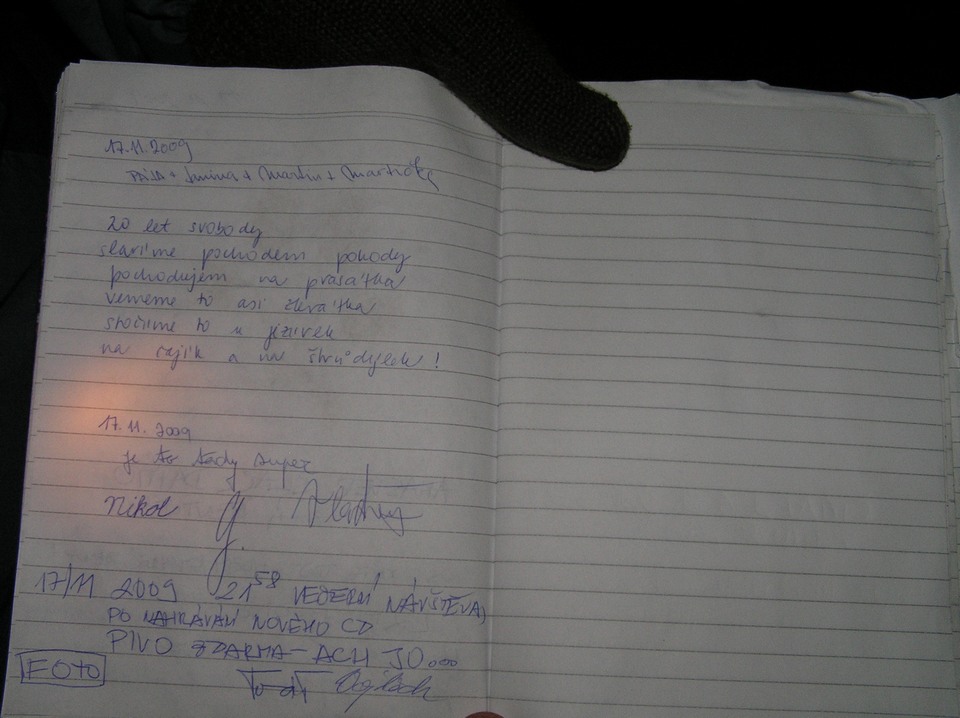 17.11.2009
+ Martin + Martička
20 let svobody
slavíme pochodem pohody
pochodujem na prasátka
vememe to asi zkrátka
stočíme to u jezírek
na čajík a na štrúdýlek!
17.11.2009
je to tady super
Nikol
17/11 2009 21 58 VEČERNÍ NÁVŠTĚVA,
PO NAHRÁVÁNÍ NOVÉHO CD
PIVO ZDARMA - ACH JO...
FOTO